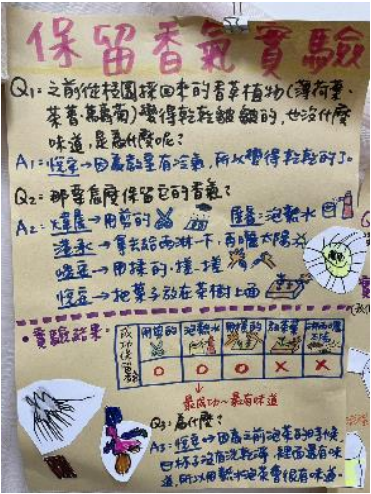 保留香氣實驗
Q1:之前從校園採回來的香草植物(薄荷葉、
茶著、萬壽菊)變得乾乾皺皺的,也沒什麼
味道,是為什麼呢?
A1: →因為教室有冷氣,所以變得乾乾的了。
Q2:那要怎麼保留它的香氣?
A2: →用剪的 泡熱水
→拿去給雨淋一下,再曬太陽
→用揉的、搓搓
→把葉子放在茶樹上面
•實驗結果:
成功保留 用剪的 泡熱水 用揉的
O O O X X
↓
最成功~最有味道
Q3:為什麼?
A3: →因為之前泡茶的時候
杯子沒有洗乾淨,裡面還有味
道,所以用熱水泡茶會很有味道。